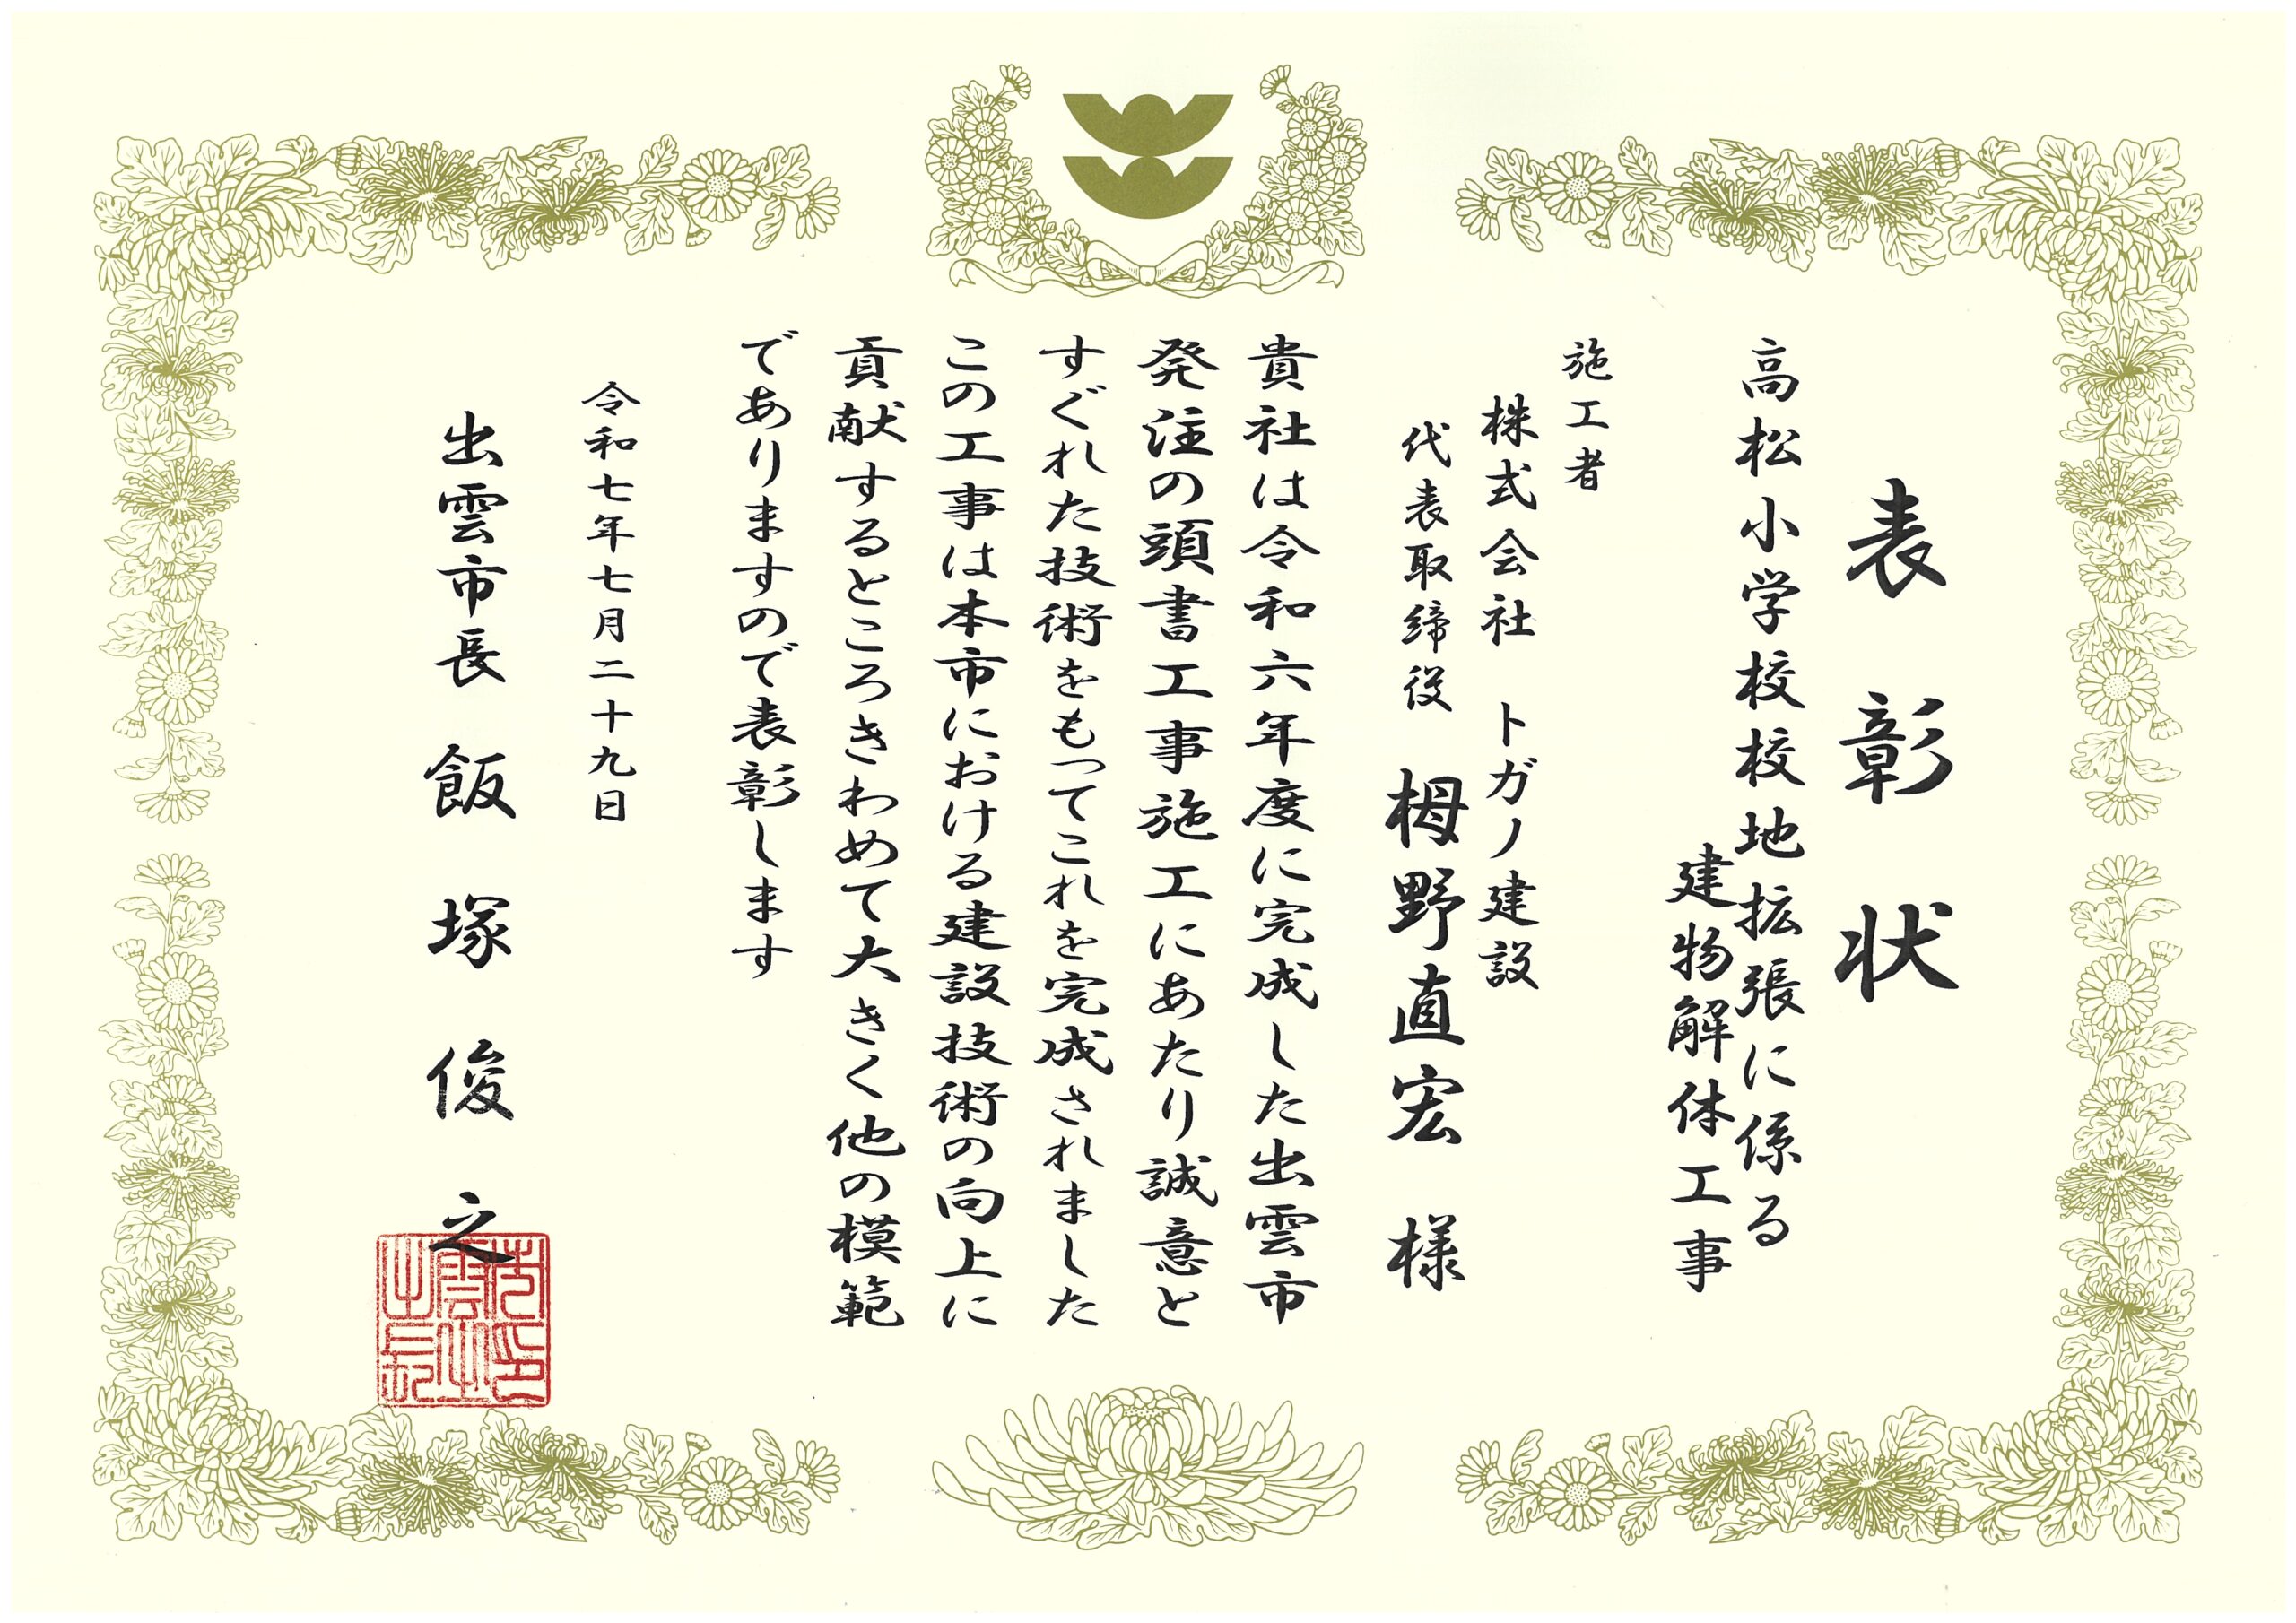 表彰状
高松小学校校地拡張に係る
建物解体工事
施工者
株式会社 トガノ建設
代表取締役 栂野直宏 様
貴社は令和六年度に完成した出雲市
発注の頭書工事施工にあたり誠意と
すぐれた技術をもってこれを完成されました
この工事は本市における建設技術の向上に
貢献するところきわめて大きく他の模範
でありますので表彰します
令和七年七月二十九日
出雲市長 飯塚俊之